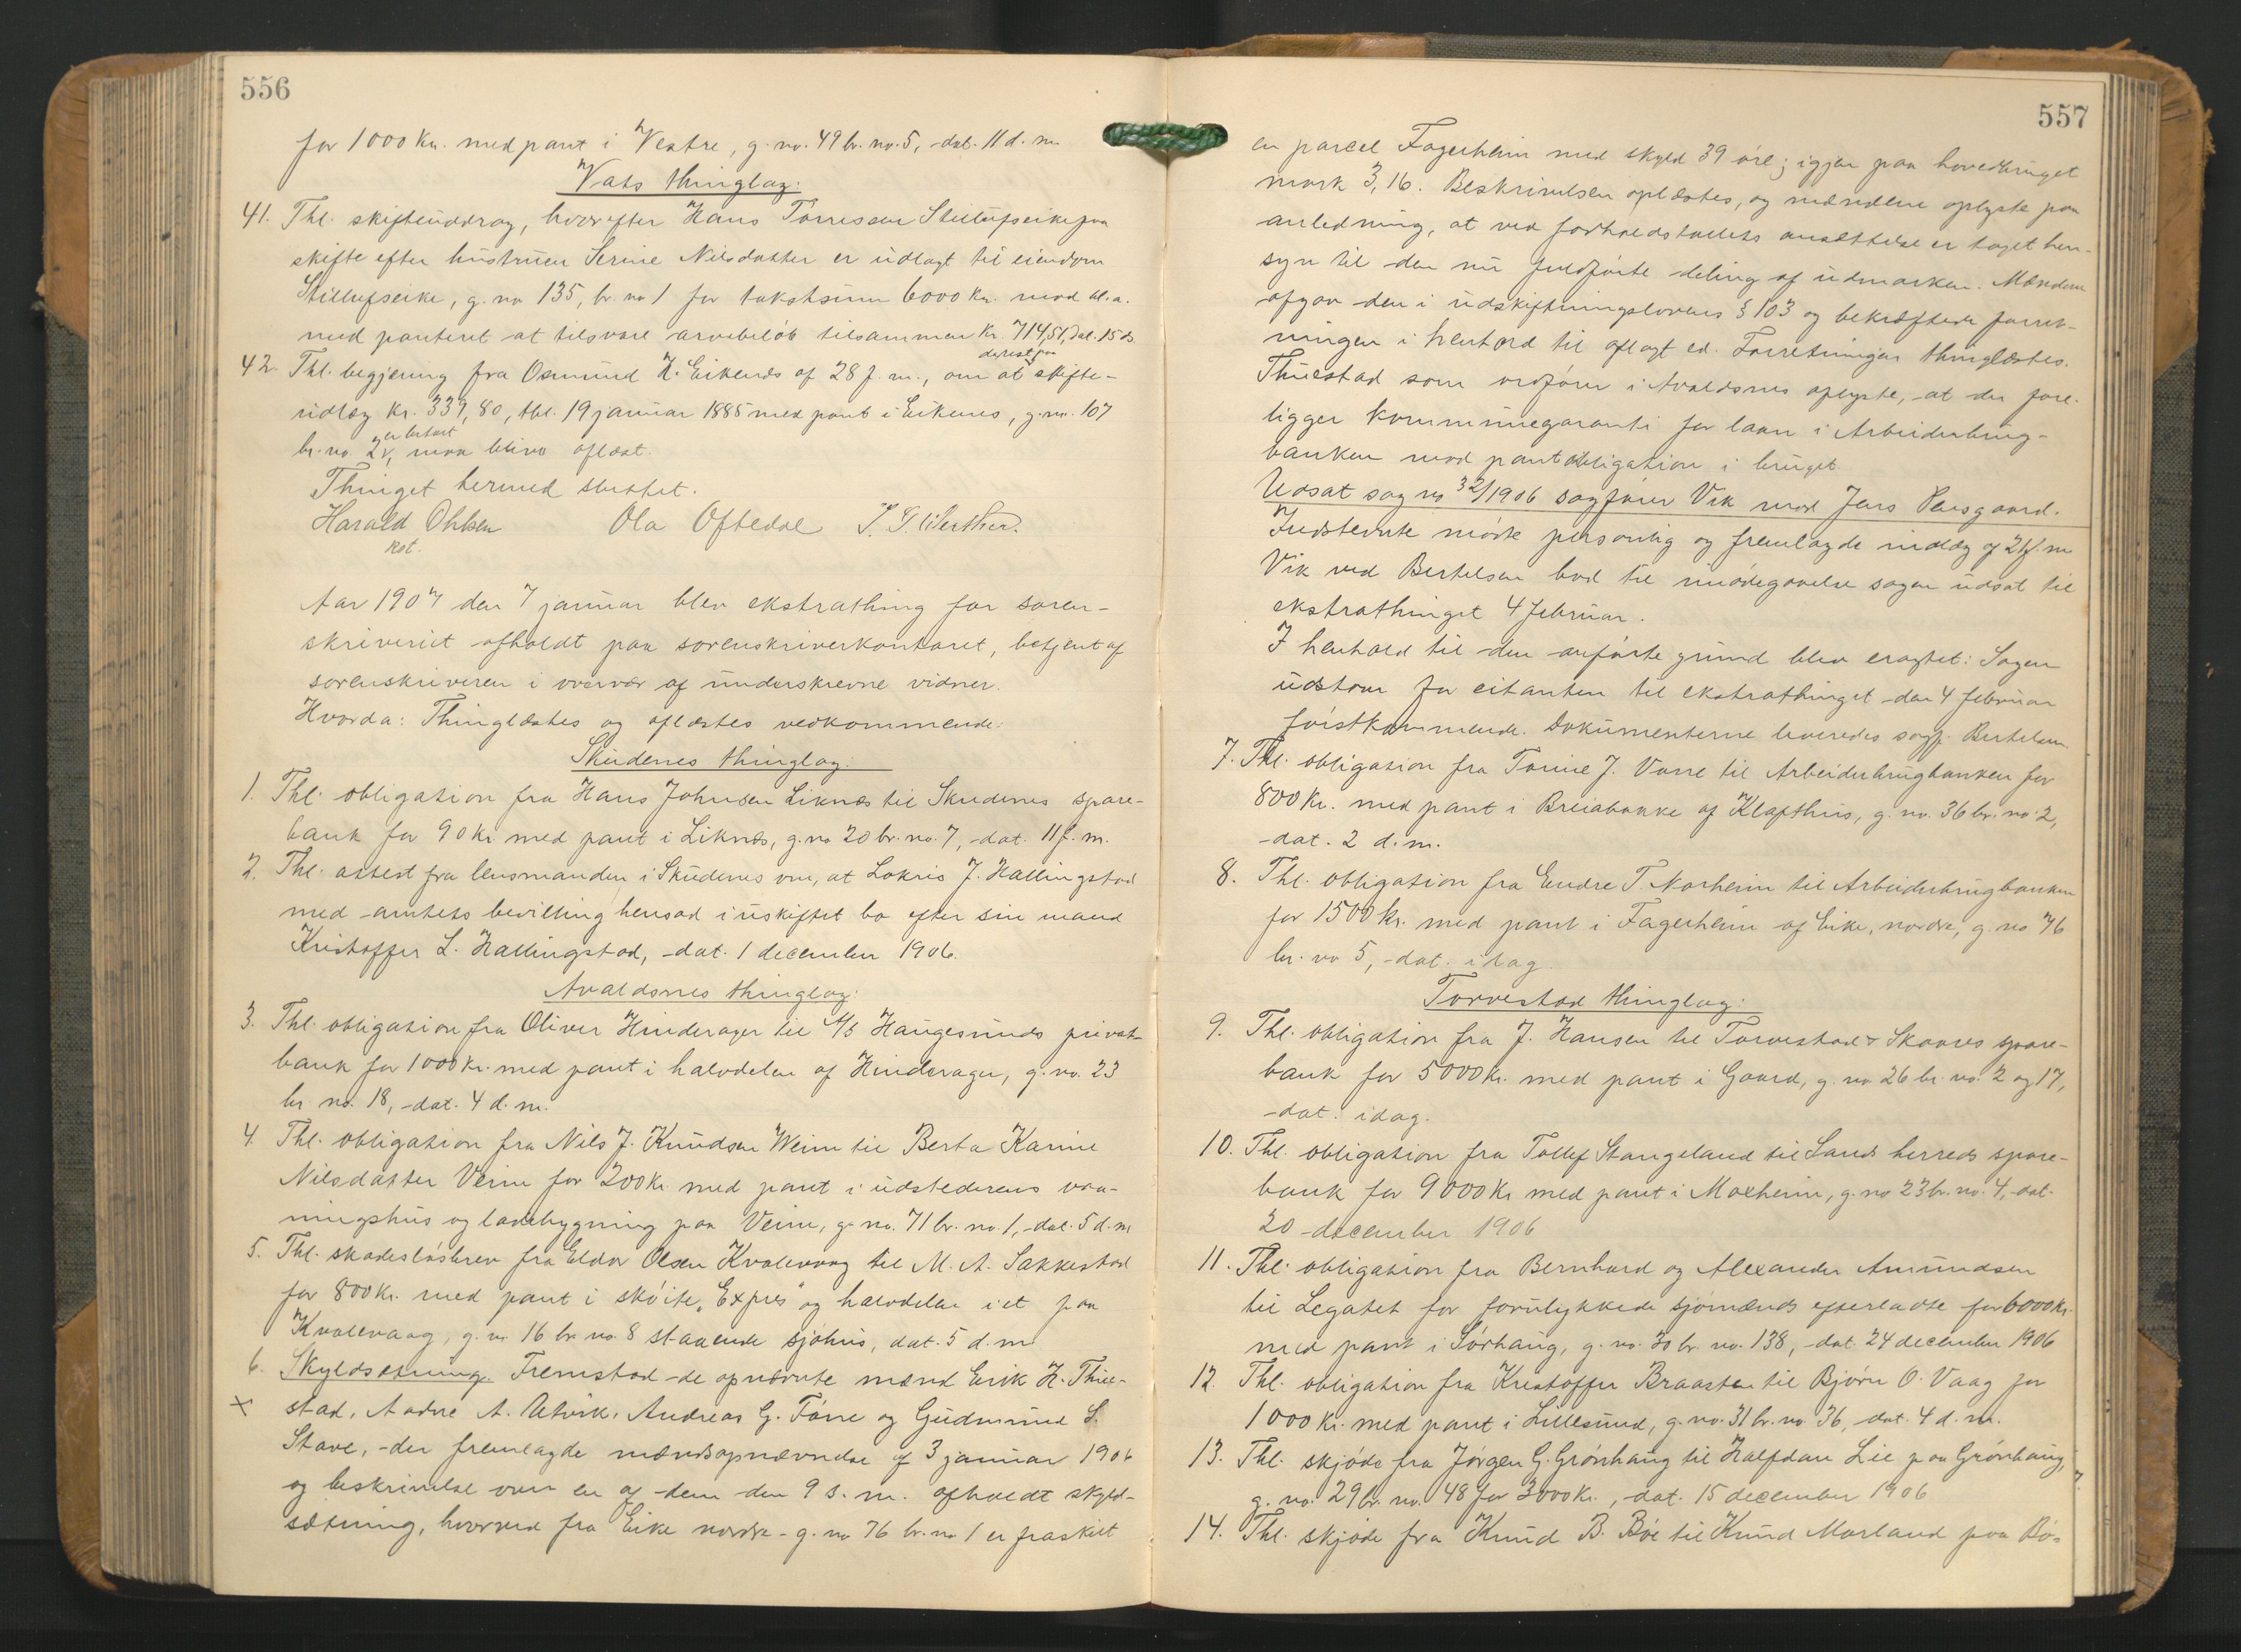 556
for 1000 kr. med pant i Vestre, g. no. 49 br. no. 5, dat. 11 d. m.
Vats thinglag:
41. Thl. skifteuddrag, hvorefter Hans Tørressen Stillufseike paa
skifte efter hustruen Serine Nilsdatter er udlagt til eiendom
Stillufseike, g. no 135, br. no 1 for takstsum 6000 kr. mod al. a.
med panteret at tilsvare arvebeløb tilsammen kr. 714,51, dat. 15 ds.
42. Thl. begjering fra Osmund H. Eikenes af 28 f. m., om at skifte-
udlæg kr. 339,80, thl. 19 januar 1885 med pant i Eikenes, g. no. 107
br. no. 2, maa blive aflæst.
Thinget hermed sluttet.
Harald Ohlsen Ola Oftedal
kst.
Aar 1907 den 7 januar blev ekstrathing for soren-
skriveriet afholdt paa sorenskriverkontoret, betjent af
sorenskriveren i overvær af underskrevne vidner.
Hvorda: Thinglæstes og aflæstes vedkommende:
Skudenes thinglag:
1. Thl. obligation fra Hans Johnsen Liknæs til Skudenes spare-
bank for 90 kr. med pant i Liknæs, g. no 20 br. no. 7, dat. 11 f. m.
2. Thl. attest fra lensmanden i Skudenes om, at Lokris J. Hallingstad
med amtets bevilling hensad i uskiftet bo efter sin mand
Kristoffer L. Hallingstad, dat. 1 december 1906.
Avaldsnes thinglag:
3. Thl. obligation fra Oliver Hinderager til A/S Haugesunds privat-
bank for 1000 kr. med pant i halvdelen af Hinderager, g. no. 23
br. no. 18, dat. 4 d. m.
4. Thl. obligation fra Nils J. Knudsen Weim til Berta Karine
Nilsdatter Veim for 200 kr. med pant i udstederens vaa-
ningshus og ladebygning paa Veim, g. no. 71 br. no. 1, dat. 5 d. m.
5. Thl. skadesløsbrev fra Eldor Olsen Kvalevaag til M. A. Sakkestad
for 800 kr. med pant i skøite "Expres" og halvdelen i et paa
Kvalevaag, g. no 16 br. no. 8 staaende sjøhus, dat. 5 d. m.
6. Skyldsætning. Fremstod de opnævnte mænd Erik H. Thue-
× stad, Aadne A. Utvik, Andreas G. Førre og Gudmund S.
Stave, der fremlagde mændsopnævnelse af 3 januar 1906
og beskrivelse over en af dem den 9 s. m. afholdt skyld-
sætning, hvorved fra Eike nordre - g. no 76 br. no 1 er fraskilt
557
en parcel Fagerheim med skyld 39 øre; igjen paa hovedbruget
mark 3,16. Beskrivelsen oplæstes, og mændene oplyste paa
anledning, at ved forholdstallets ansættelse er taget hen-
syn til den nu fuldførte deling af udmarken. Mændene
afgav den i udskiftningslovens § 103 og bekræftede forret-
ningen i henhold til aflagt ed. Forretningen thinglæstes.
Thuestad som ordfører i Avaldsnes oplyste, at der fore-
ligger kommunegaranti for laan i Arbeiderbrug-
banken mod pantobligation i bruget.
Udsat sag no 32/1906 sagfører Vik mod Jens Vensgaard.
Indstevnte mødte personlig og fremlagde indlæg af
Vik ved Bertelsen bad til imødegaaelse sagen udsat til
ekstrathinget 4 februar.
I henhold til den anførte grund blev eragtet: Sagen
udstaar for citanten til ekstrathinget den 4 februar
førstkommende. Dokumenterne leveredes sagf. Bertelsen.
7. Thl. obligation fra Tomine J. Vorre til Arbeiderbrugbanken for
800 kr. med pant i Breiabakke af Klofthus, g. no. 36 br. no. 2,
dat. 2 d. m.
8. Thl. obligation fra Endre T. Norheim til Arbeiderbrugbanken
for 1500 kr. med pant i Fagerheim af Eike, nordre, g. no 76
br. no 5, dat. idag.
Torvestad thinglag:
9. Thl. obligation fra J. Hansen til Torvestad & Skaares spare-
bank for 5000 kr. med pant i Gaard, g. no 26 br. no. 2 og 17,
dat. idag.
10. Thl. obligation fra Tollef Stangeland til Sands herreds spare-
bank for 9000 kr med pant i Moxheim, g. no 23 br. no. 4, dat.
20 december 1906
11. Thl. obligation fra Bernhard og Alexander Amundsen
til Legatet for forulykkede sjømænds efterladte for 6000 kr.
med pant i Sørhaug, g. no. 30 br. no. 138, dat. 24 december 1906
12. Thl. obligation fra Kristoffer Braaten til Bjørn O. Vaag for
1000 kr. med pant i Lillesund, g. no. 31 br. no. 36, dat. 4 d. m.
13. Thl. skjøde fra Jørgen G. Grønhaug til Halfdan Lie paa Grønhaug,
g. no. 29 br. no. 48 for 3000 kr., dat. 15 december 1906
14. Thl. skjøde fra Knud B. Bøe til Knud Morland paa Bø-